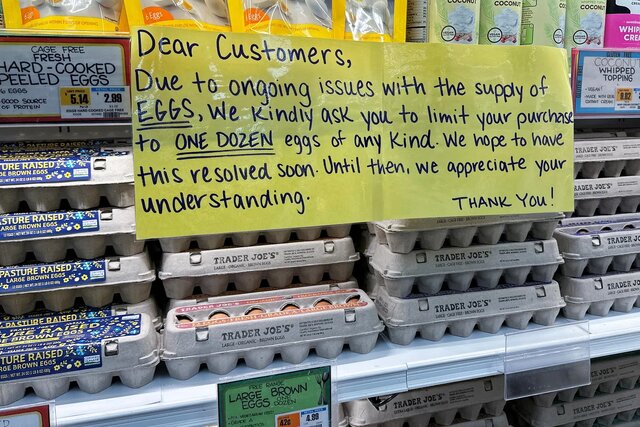 Dear Customers,
Due to ongoing issues with the supply of
EGGS, we kindly ask you to limit your purchase
to ONE DOZEN eggs of any kind. We hope to have
this resolved soon. Until then, we appreciate your
understanding.
THANK YOU!
CAGE FREE
FRESH
HARD-COOKED
PEELED EGGS
6 EGGS
GOOD SOURCE
OF PROTEIN
5.14
2.99
COCONUT
WHIPPED
TOPPING
COCONUT
COCONUT
WHIPP
CREA
TURE RAISED
BROWN EGGS
STURE RAISED
PASTURE RAISED
PASTURE RAISED
TURE RAISED
TRADER JOE'S
LARGE - ORGANIC - BROWN EGGS
TRADER JOE'S
TRADER JOE'S
TRADER JOE'S
TRADER JOE'S
TRADER JOE'S
TRADER JOE'S
TRADER JOE'S
TRADER JOE'S
FREE RANGE
LARGE BROWN
EGGS
DOZEN
42¢
4.99